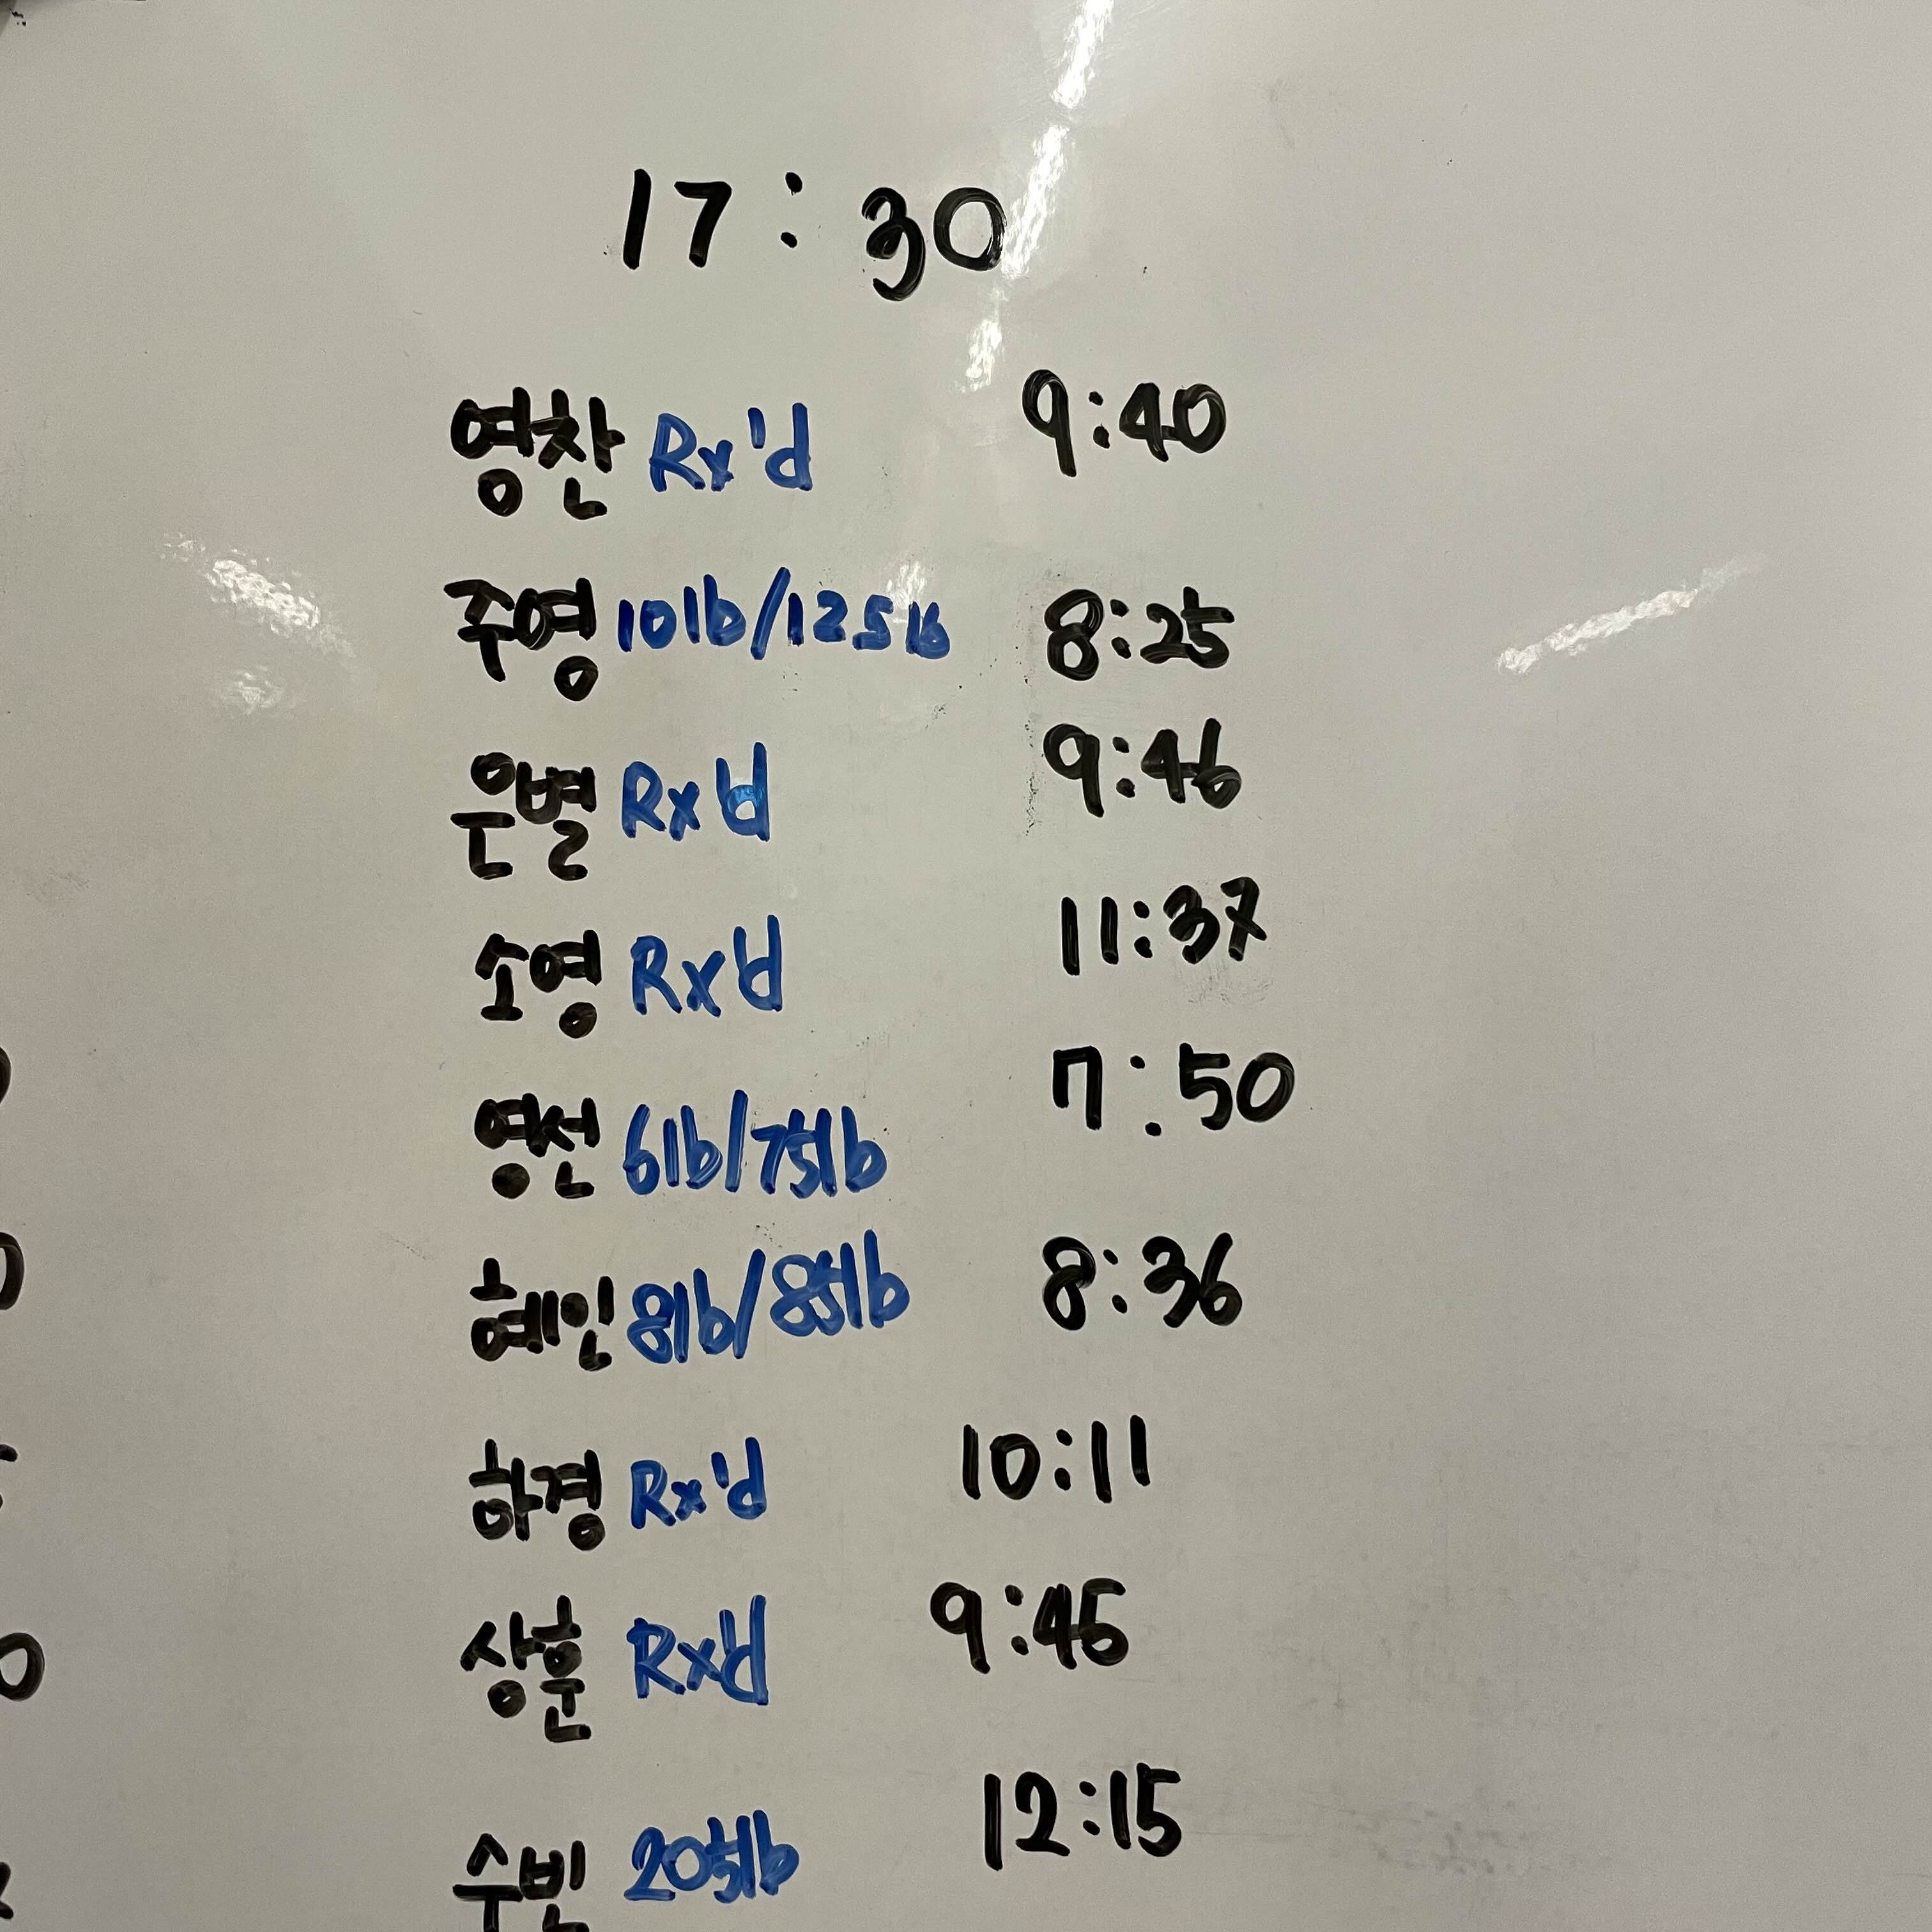 17:30
영찬 Rx'd 9:40
주영 10lb/125lb 8:25
은별 Rx'd 9:46
소영 Rx'd 11:37
영선 6lb/75lb 7:50
혜인 8lb/85lb 8:36
하경 Rx'd 10:11
상훈 Rx'd 9:45
수빈 205lb 12:15